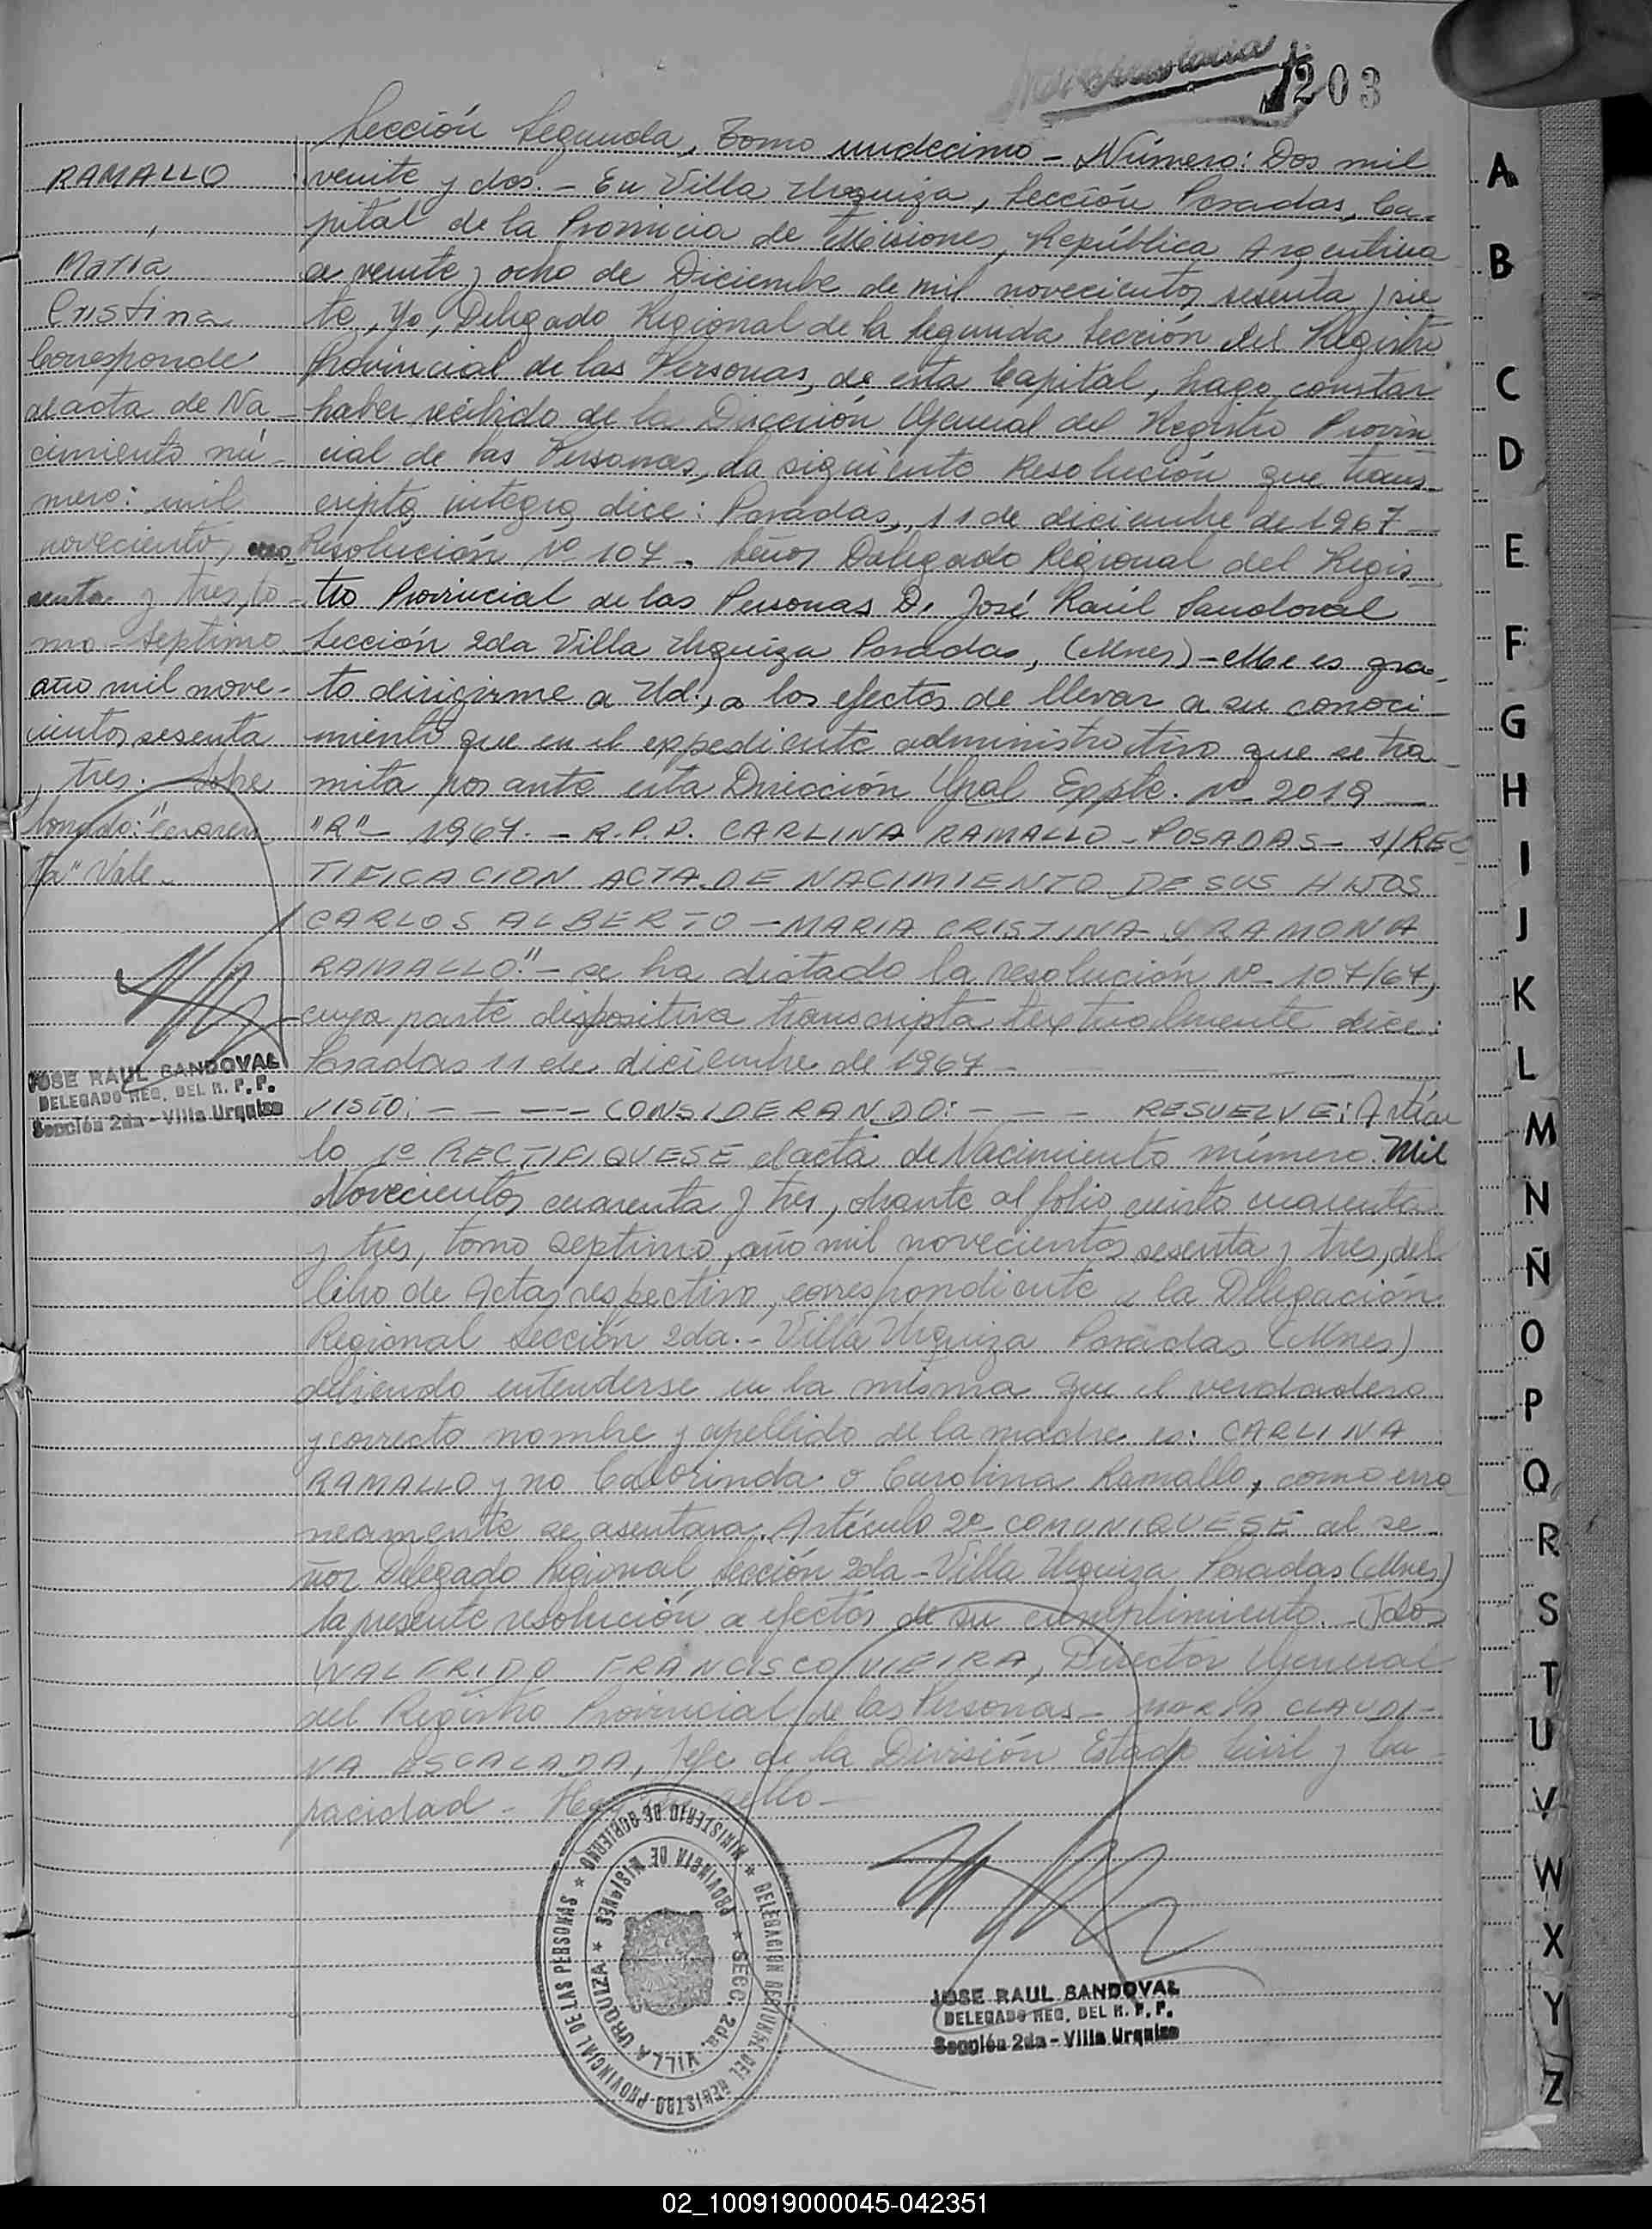 203
Sección Segunda, Tomo undecimo - Número: Dos mil
veinte y dos. - En Villa Urquiza, Sección Posadas, Ca-
pital de la Provincia de Misiones, República Argentina
a veinte y ocho de Diciembre de mil novecientos sesenta y sie
te, Yo, Delegado Regional de la Segunda Sección del Registro
Provincial de las Personas, de esta Capital, hago constar
haber recibido de la Dirección General del Registro Provin-
cial de las Personas, la siguiente Resolución que trans-
cripta integra dice: Posadas, 11 de diciembre de 1967 -
Resolución Nº 107 - Señor Delegado Regional del Regis-
tro Provincial de las Personas D. José Raúl Sandoval
Sección 2da Villa Urquiza Posadas, (Mnes) - Me es gra-
to dirigirme a Ud., a los efectos de llevar a su conoci-
miento que en el expediente administrativo que se tra-
mita por ante esta Dirección Gral Expte. Nº 2019 -
"R" - 1967. - R.P.D. CARLINA RAMALLO - POSADAS - s/REC
TIFICACION ACTA DE NACIMIENTO DE SUS HIJOS
CARLOS ALBERTO - MARIA CRISTINA Y RAMONA
RAMALLO." - se ha dictado la resolución Nº 107/67,
cuya parte dispositiva transcripta textualmente dice:
Posadas 11 de diciembre de 1967 -
VISTO: - - - - CONSIDERANDO: - - - RESUELVE: Artícu
lo 1º RECTIFIQUESE el acta de Nacimiento número Mil
Novecientos cuarenta y tres, obrante al folio ciento cuarenta
y tres, tomo septimo, año mil novecientos sesenta y tres, del
libro de Actas respectivo, correspondiente a la Delegación
Regional Sección 2da. - Villa Urquiza Posadas (Mnes)
debiendo entenderse en la misma que el verdadero
y correcto nombre y apellido de la madre es: CARLINA
RAMALLO y no Calorinda o Carolina Ramallo, como erro
neamente se asentara. Artículo 2º COMUNIQUESE al se-
ñor Delegado Regional Sección 2da - Villa Urquiza Posadas (Mnes)
la presente resolución a efectos de su cumplimiento. - Fdo
WALFRIDO FRANCISCO VIEIRA, Director General
del Registro Provincial de las Personas - MARIA CLAUDI-
NA ESCALADA, Jefe de la División Estado Civil y Ca-
pacidad - Hay sello -
RAMALLO
,
Maria
Cristina
Corresponde
al acta de Na-
cimiento nú-
mero: mil
novecientos
y tres, to-
mo - Septimo
año mil nove-
cientos sesenta
y tres. Sobre
borrado: "cuaren
ta" Vale -
JOSE RAUL SANDOVAL
DELEGADO REG. DEL R. P. P.
Sección 2da - Villa Urquiza
MINISTERIO DE GOBIERNO * DELEGACION REGIONAL DEL REGISTRO PROVINCIAL DE LAS PERSONAS *
PROVINCIA DE MISIONES * SECC. 2da. VILLA URQUIZA *
JOSE RAUL SANDOVAL
DELEGADO REG. DEL R. P. P.
Sección 2da - Villa Urquiza
A
B
C
D
E
F
G
H
I
J
K
L
M
N
Ñ
O
P
Q
R
S
T
U
V
W
X
Y
Z
02_100919000045-042351